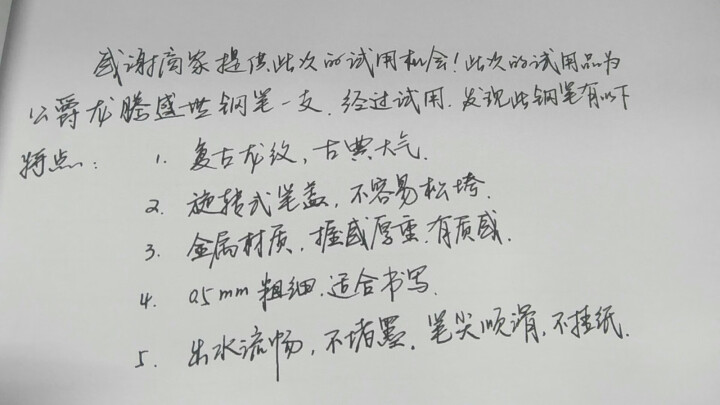 感谢商家提供此次的试用机会!此次的试用品为
公爵龙腾盛世钢笔一支.经过试用.发现此钢笔有以下
特点:
1. 复古龙纹,古典大气.
2. 旋转式笔盖,不容易松垮.
3. 金属材质,握感厚重.有质感.
4. 0.5mm粗细.适合书写.
5. 出水流畅,不堵墨.笔尖顺滑,不挂纸.